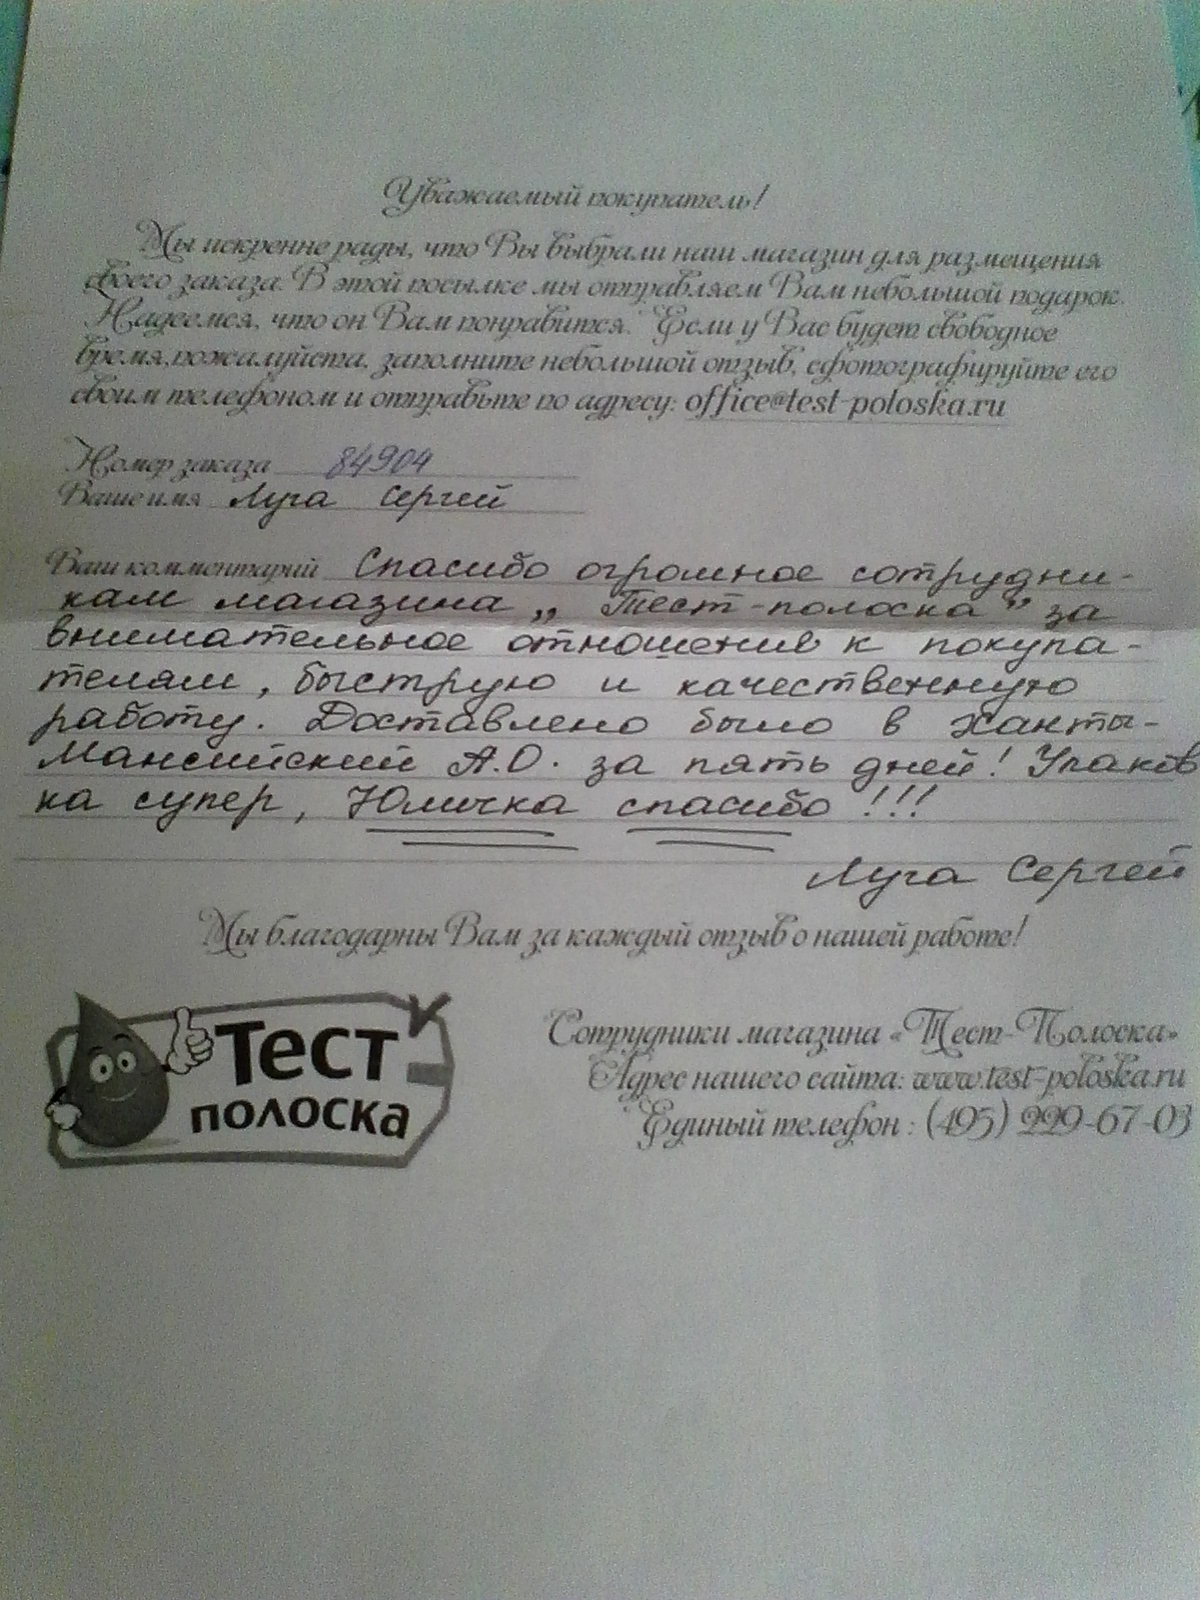 Уважаемый покупатель!
Мы искренне рады, что Вы выбрали наш магазин для размещения
своего заказа. В этой посылке мы отправляем Вам небольшой подарок.
Надеемся, что он Вам понравится. Если у Вас будет свободное
время, пожалуйста, заполните небольшой отзыв, сфотографируйте его
своим телефоном и отправьте по адресу: office@test-poloska.ru
Номер заказа 84904
Ваше имя Луга Сергей
Ваш комментарий Спасибо огромное сотрудни-
кам магазина „Тест-полоска” за
внимательное отношение к покупа-
телям, быструю и качественную
работу. Доставлено было в Ханты-
Мансийский А.О. за пять дней! Упаков
ка супер, Юличка спасибо !!!
Луга Сергей
Мы благодарны Вам за каждый отзыв о нашей работе!
Тест
полоска
Сотрудники магазина «Тест-Полоска»
Адрес нашего сайта: www.test-poloska.ru
Единый телефон : (495) 229-67-03